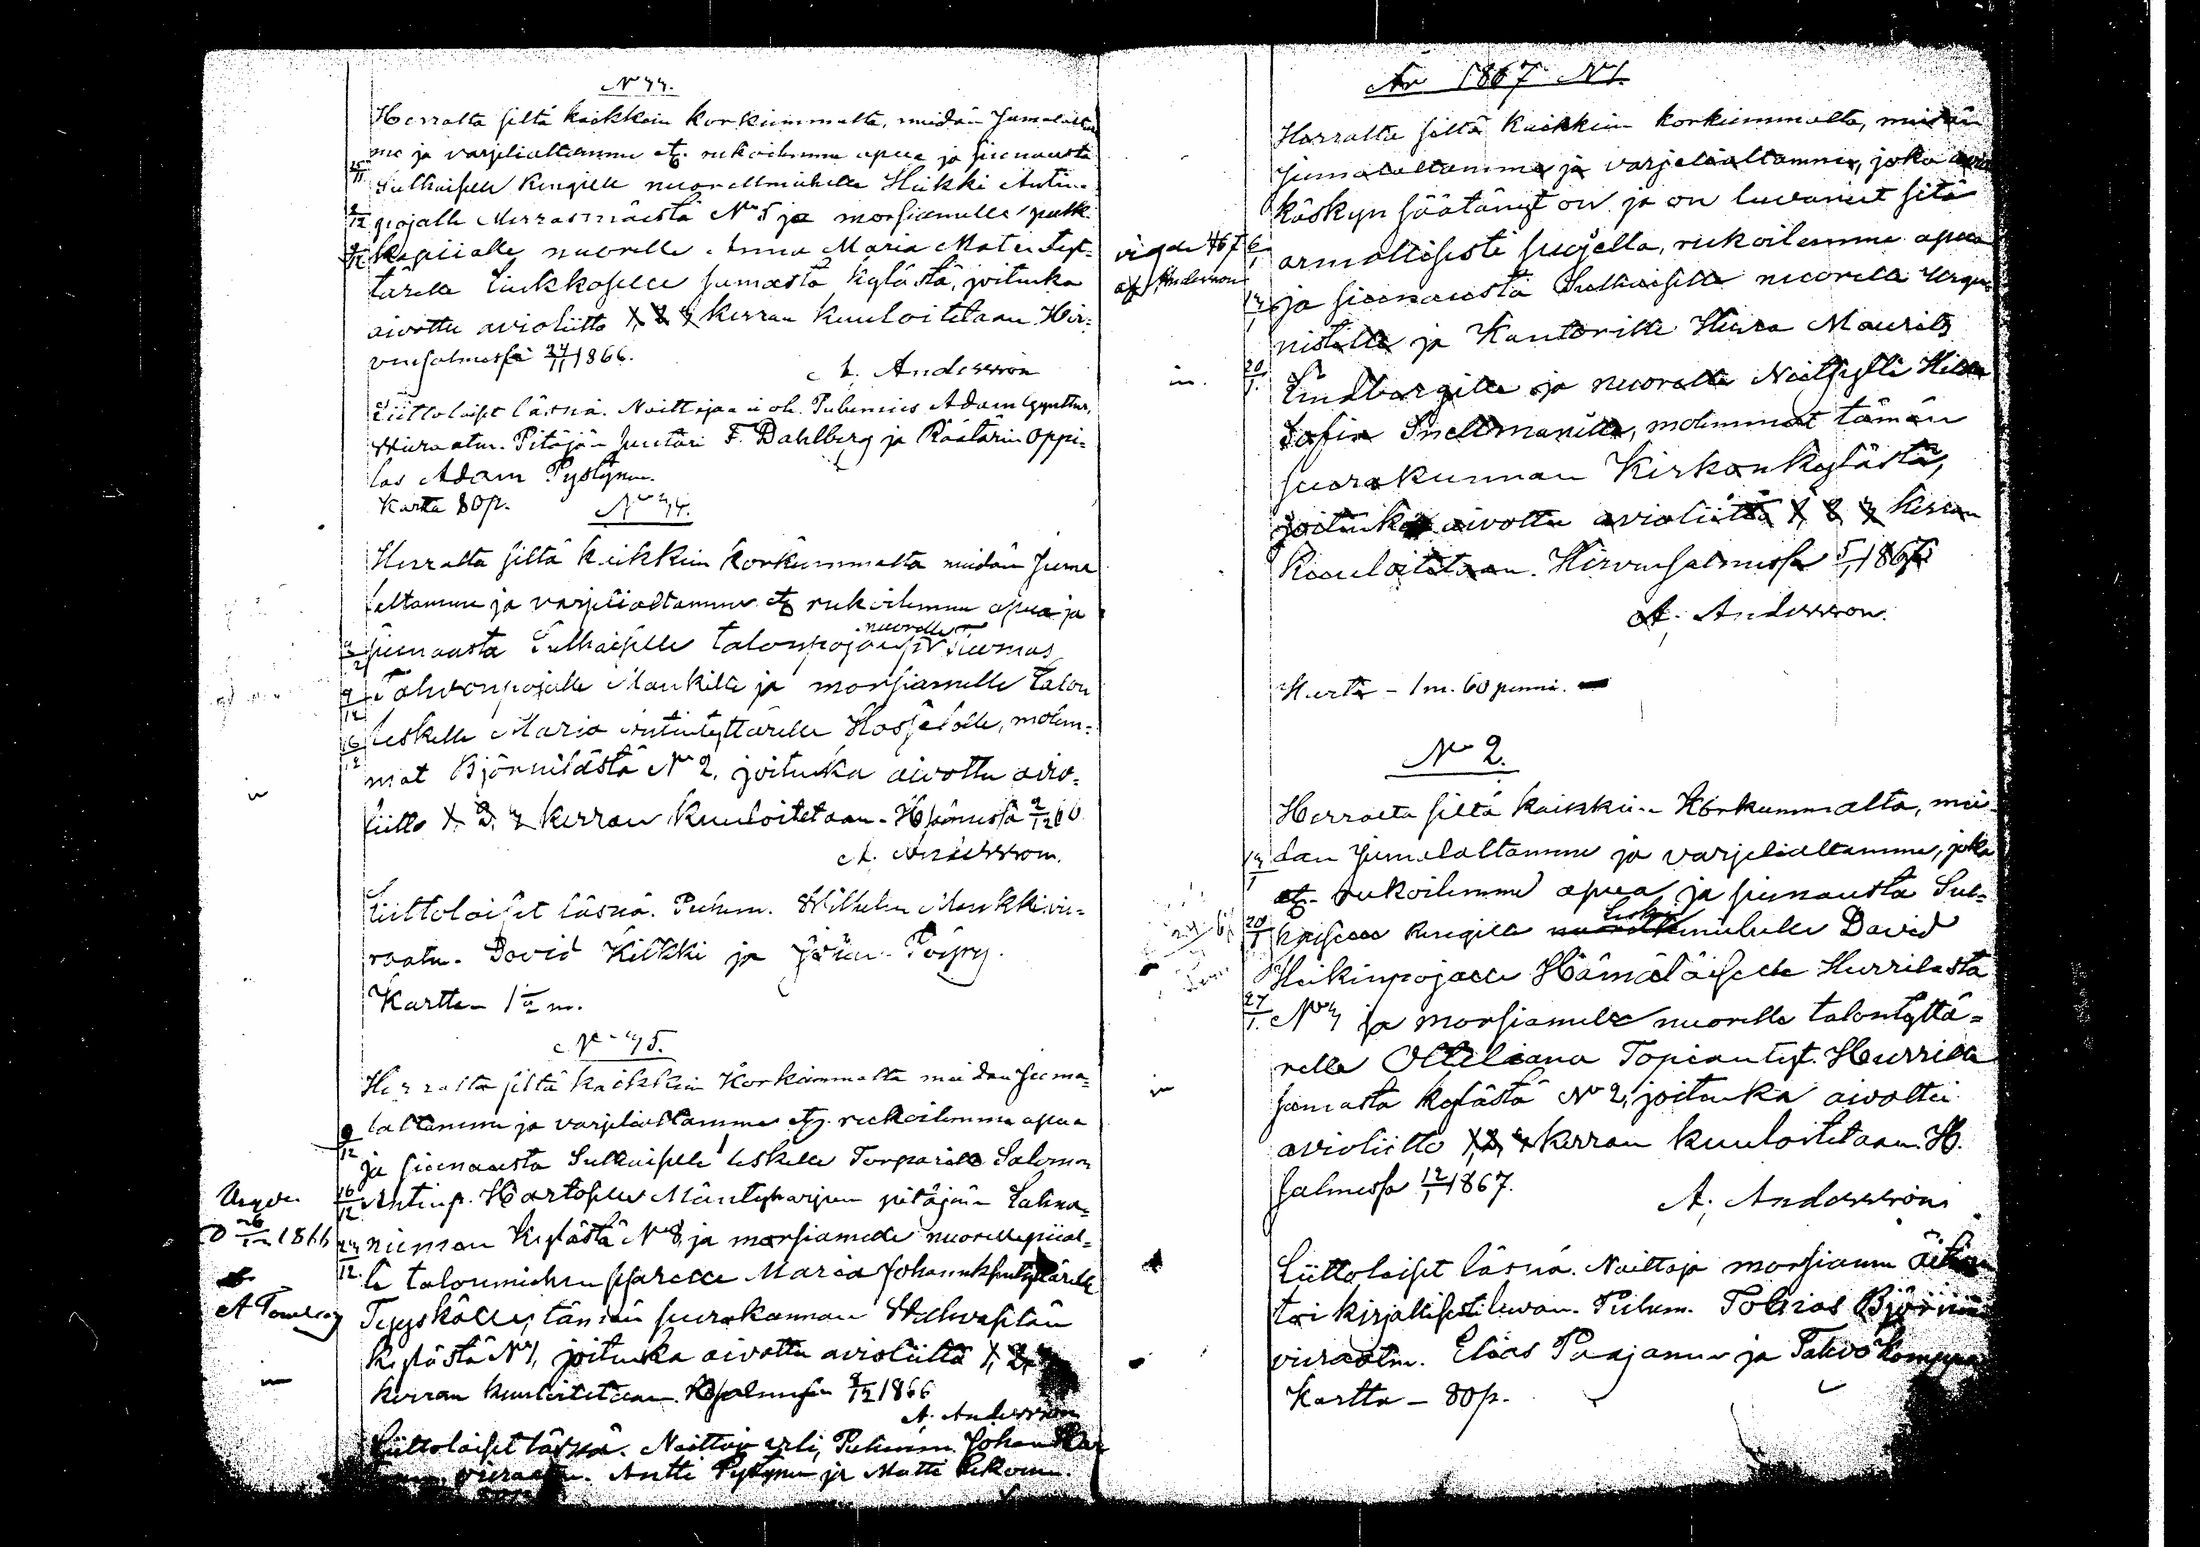 No 33.
Herralta siltä kaikkein korkiimmalta, meidän Jumalalta
me ja varjelialtamme etc. rukoilemme apua ja siunausta
25/11 Sulhaiselle Rengille nuorellemiehelle Heikki Antin
2/12 pojalle Merrasmäestä No 5 ja morsiamelle
9/12 nuorelle Anna Maria Matin tyt-
tärelle Liukkoselle samasta kylästä, joitenka
aivottu avioliitto 1, 2, 3 kerran kuuloitetaan Hir-
vensalmessa 24/11 1866.
A. Andersson
Liittolaiset läsnä. Naittajaa ei ole. Puhemies Adam Gynther,
Vieraatm. Pitäjän Suutari F. Dahlberg ja Räätärin oppi-
las Adam Pystynen.
Kartta 80 p.
No 34.
Herralta siltä kaikkein korkiimmalta meidän Juma
laltamme ja varjelialtamme etc rukoilemme apua ja
2/12 siunausta Sulhaiselle talonpojan p. nuorelle Tuomas
9/12 Tahvonpojalle Maukille ja morsiamelle talon
16/12 leskelle Maria Antintyttärelle molem-
mat Björnilästä No 2, joitenka aivottu avio-
liitto 1, 2, 3 kerran kuuloitetaan. Hsalmessa 2/12 66
A. Andersson.
Liittolaiset läsnä. Puhem. Wilhelm Maukki, vie-
raatm. David Kilkki ja Töyry.
Kartta 1 1/2 m.
No 35.
Herralta siltä kaikkein Korkiimmalta meidän Juma-
laltamme ja varjelialtamme etc. rukoilemme apua
9/12 ja siunausta Sulhaiselle leskelle Torparille Salomon
16/12 Antinp. Hartoselle Mäntyharjun pitäjän Lahna-
niemen kylästä No 8, ja morsiamelle nuorelle piial-
23/12 le talonmiehen sisarelle Maria Johanneksentyttärelle
Tyyskälle, tämän seurakunnan Wahvaselän
kylästä No 1, joitenka aivottu avioliitto 1, 2, 3
kerran kuuloitetaan. Hsalmessa 8/12 1866
A. Andersson
Liittolaiset läsnä. Naittaja veli, Puhemies Johan
vieraatm. Antti Pystynen ja Matti
Wigde
D 26/12 1866
af
A
År 1867 No 1.
Herralta siltä kaikkein korkiimmalta, meidän
Jumalaltamme ja varjelialtamme, joka avio
käskyn säätänyt on ja on luvannut sitä
6/1 armollisesti suojella, rukoilemme apua
13/1 ja siunausta Sulhaiselle nuorelle Urga-
nistille ja Kantorille Herra Maurits
20/1 Lindbergille ja nuorelle Neitsylle Hilda
Sofia Snellmanille, molemmat tämän
seurakunnan Kirkonkylästä,
joitenka aivottu avioliitto 1, 2, 3 kerran
kuuloitetaan. Hirvensalmessa 5/1 1867
A. Andersson.
vigde
af Andersson
Kartta - 1 m. 60 penni.
No 2.
Herralta siltä kaikkein Korkiimmalta, mei-
13/1 dän Jumalaltamme ja varjelialtamme, joka
etc. rukoilemme apua ja siunausta Sul-
20/1 haiselle Rengille leski miehelle David
Heikinpojalle Hämäläiselle Hurrilasta
27/1 No 3 ja morsiamelle nuorelle talontyttä-
relle Otteliana Topiantyt. Hurrille
samasta kylästä No 2, joitenka aivottu
avioliitto 1, 2, 3 kerran kuuloitetaan. H.
salmessa 12/1 1867.
A. Andersson
Liittolaiset läsnä. Naittaja morsiamen äitin
toi kirjallisesti luvan. Puhem. Tobias Björnin
vieraatm. Elias Paajanen ja Tahvo Komppa
Kartta - 80 p.